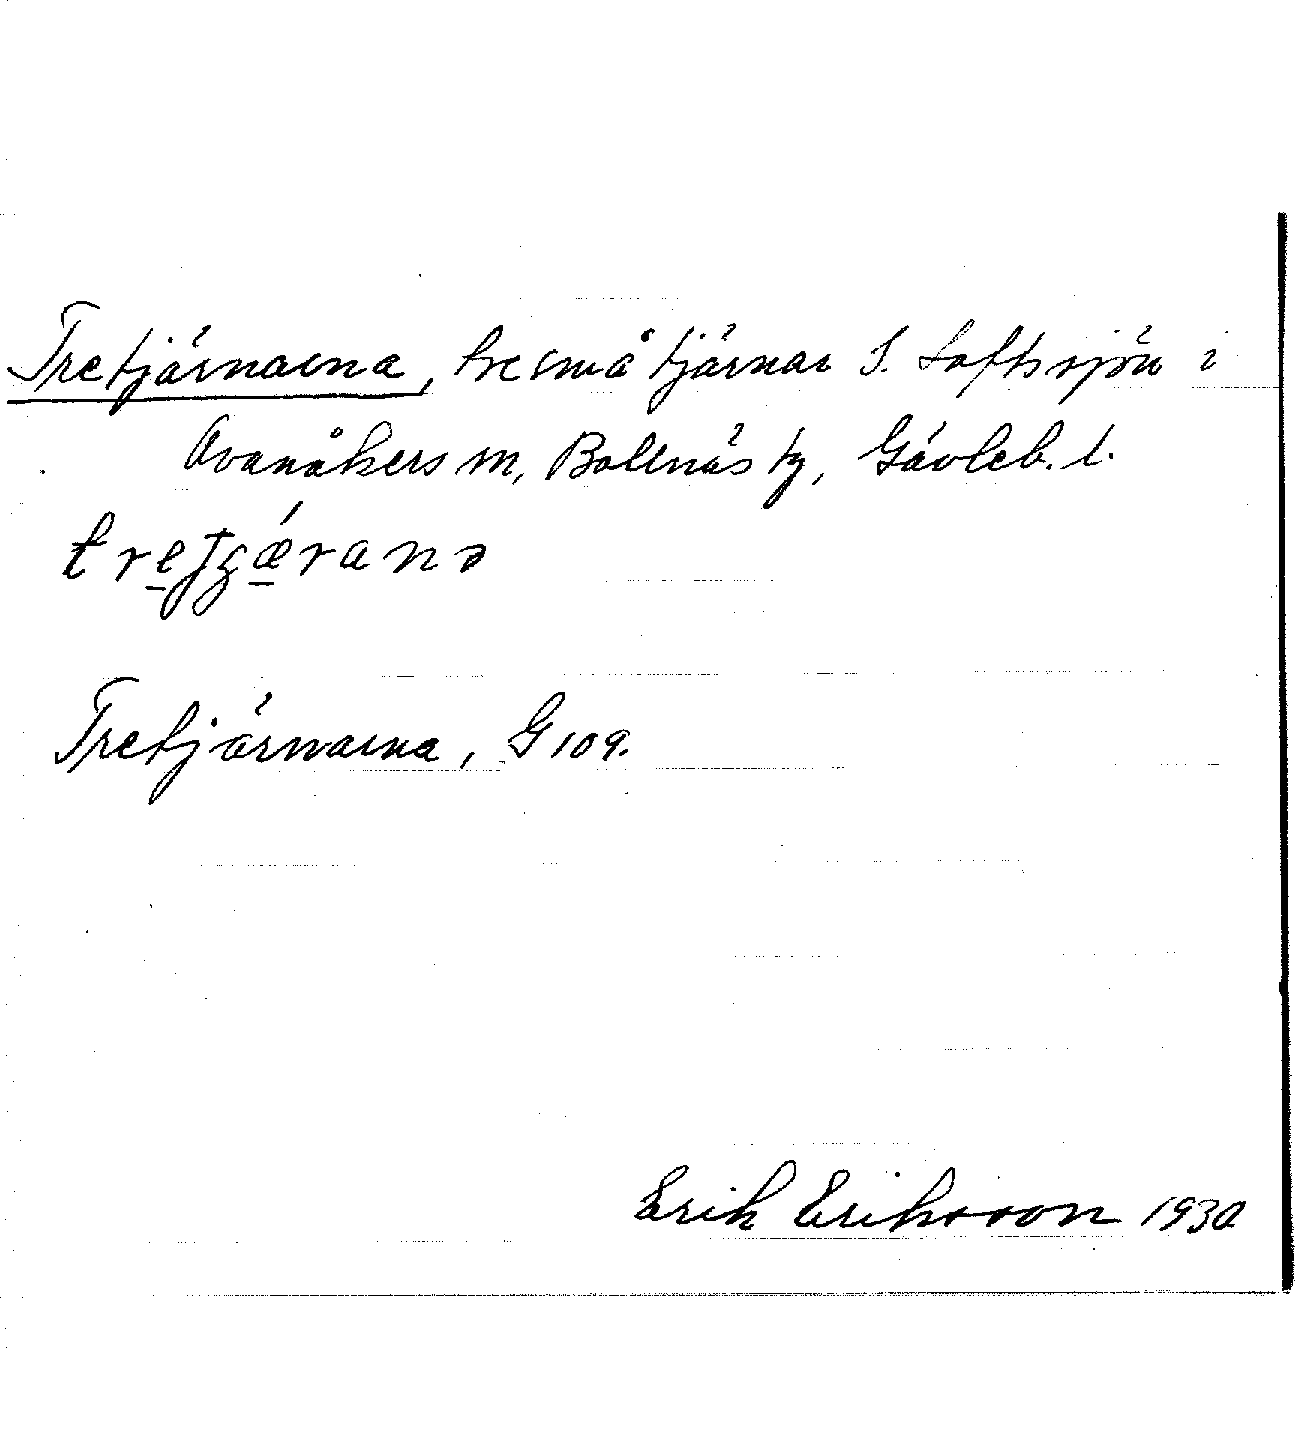 Tretjärnarna, tre små tjärnar S. Loftssjön i
Ovanåkers sn, Bollnäs tg, Gävleb. l.
Tretjärnarna, G 109.
Erik Eriksson 1930